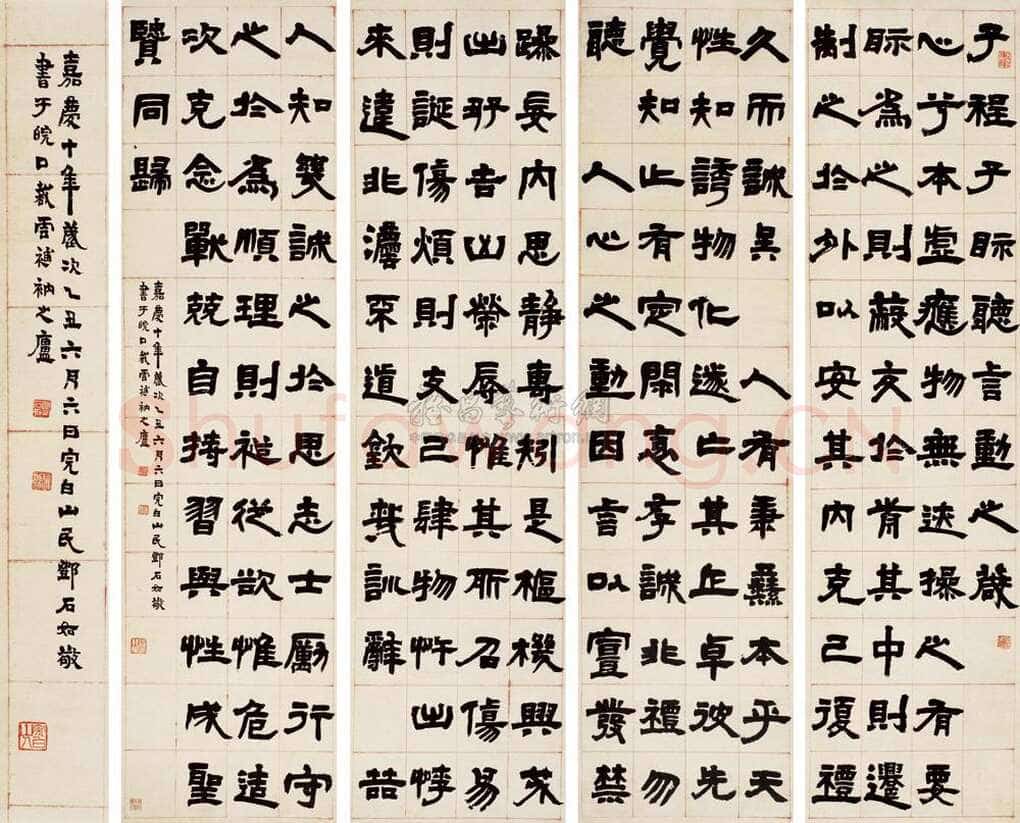 子程子眎聽言動之箴
心兮本虛應物無迹操之有要
眎為之則蔽交於前其中則遷
制之於外以安其內克己復禮
久而誠矣 人有秉彝本乎天
性知誘物化遂亡其正卓彼先
覺知止有定閑衺存誠非禮勿
聽 人心之動因言以宣發禁
躁妄內思靜專矧是樞機興戎
出好吉凶榮辱惟其所召傷易
則誕傷煩則支己肆物忤出悖
來違非灋不道欽哉訓辭 哲
人知幾誠之於思志士勵行守
之於為順理則裕從欲惟危造
次克念戰兢自持習與性成聖
賢同歸
嘉慶十年歲次乙丑六月六日完白山民鄧石如敬
書于皖口裁雲補衲之廬
嘉慶十年歲次乙丑六月六日完白山民鄧石如敬
書于皖口裁雲補衲之廬
Shufawang.CN